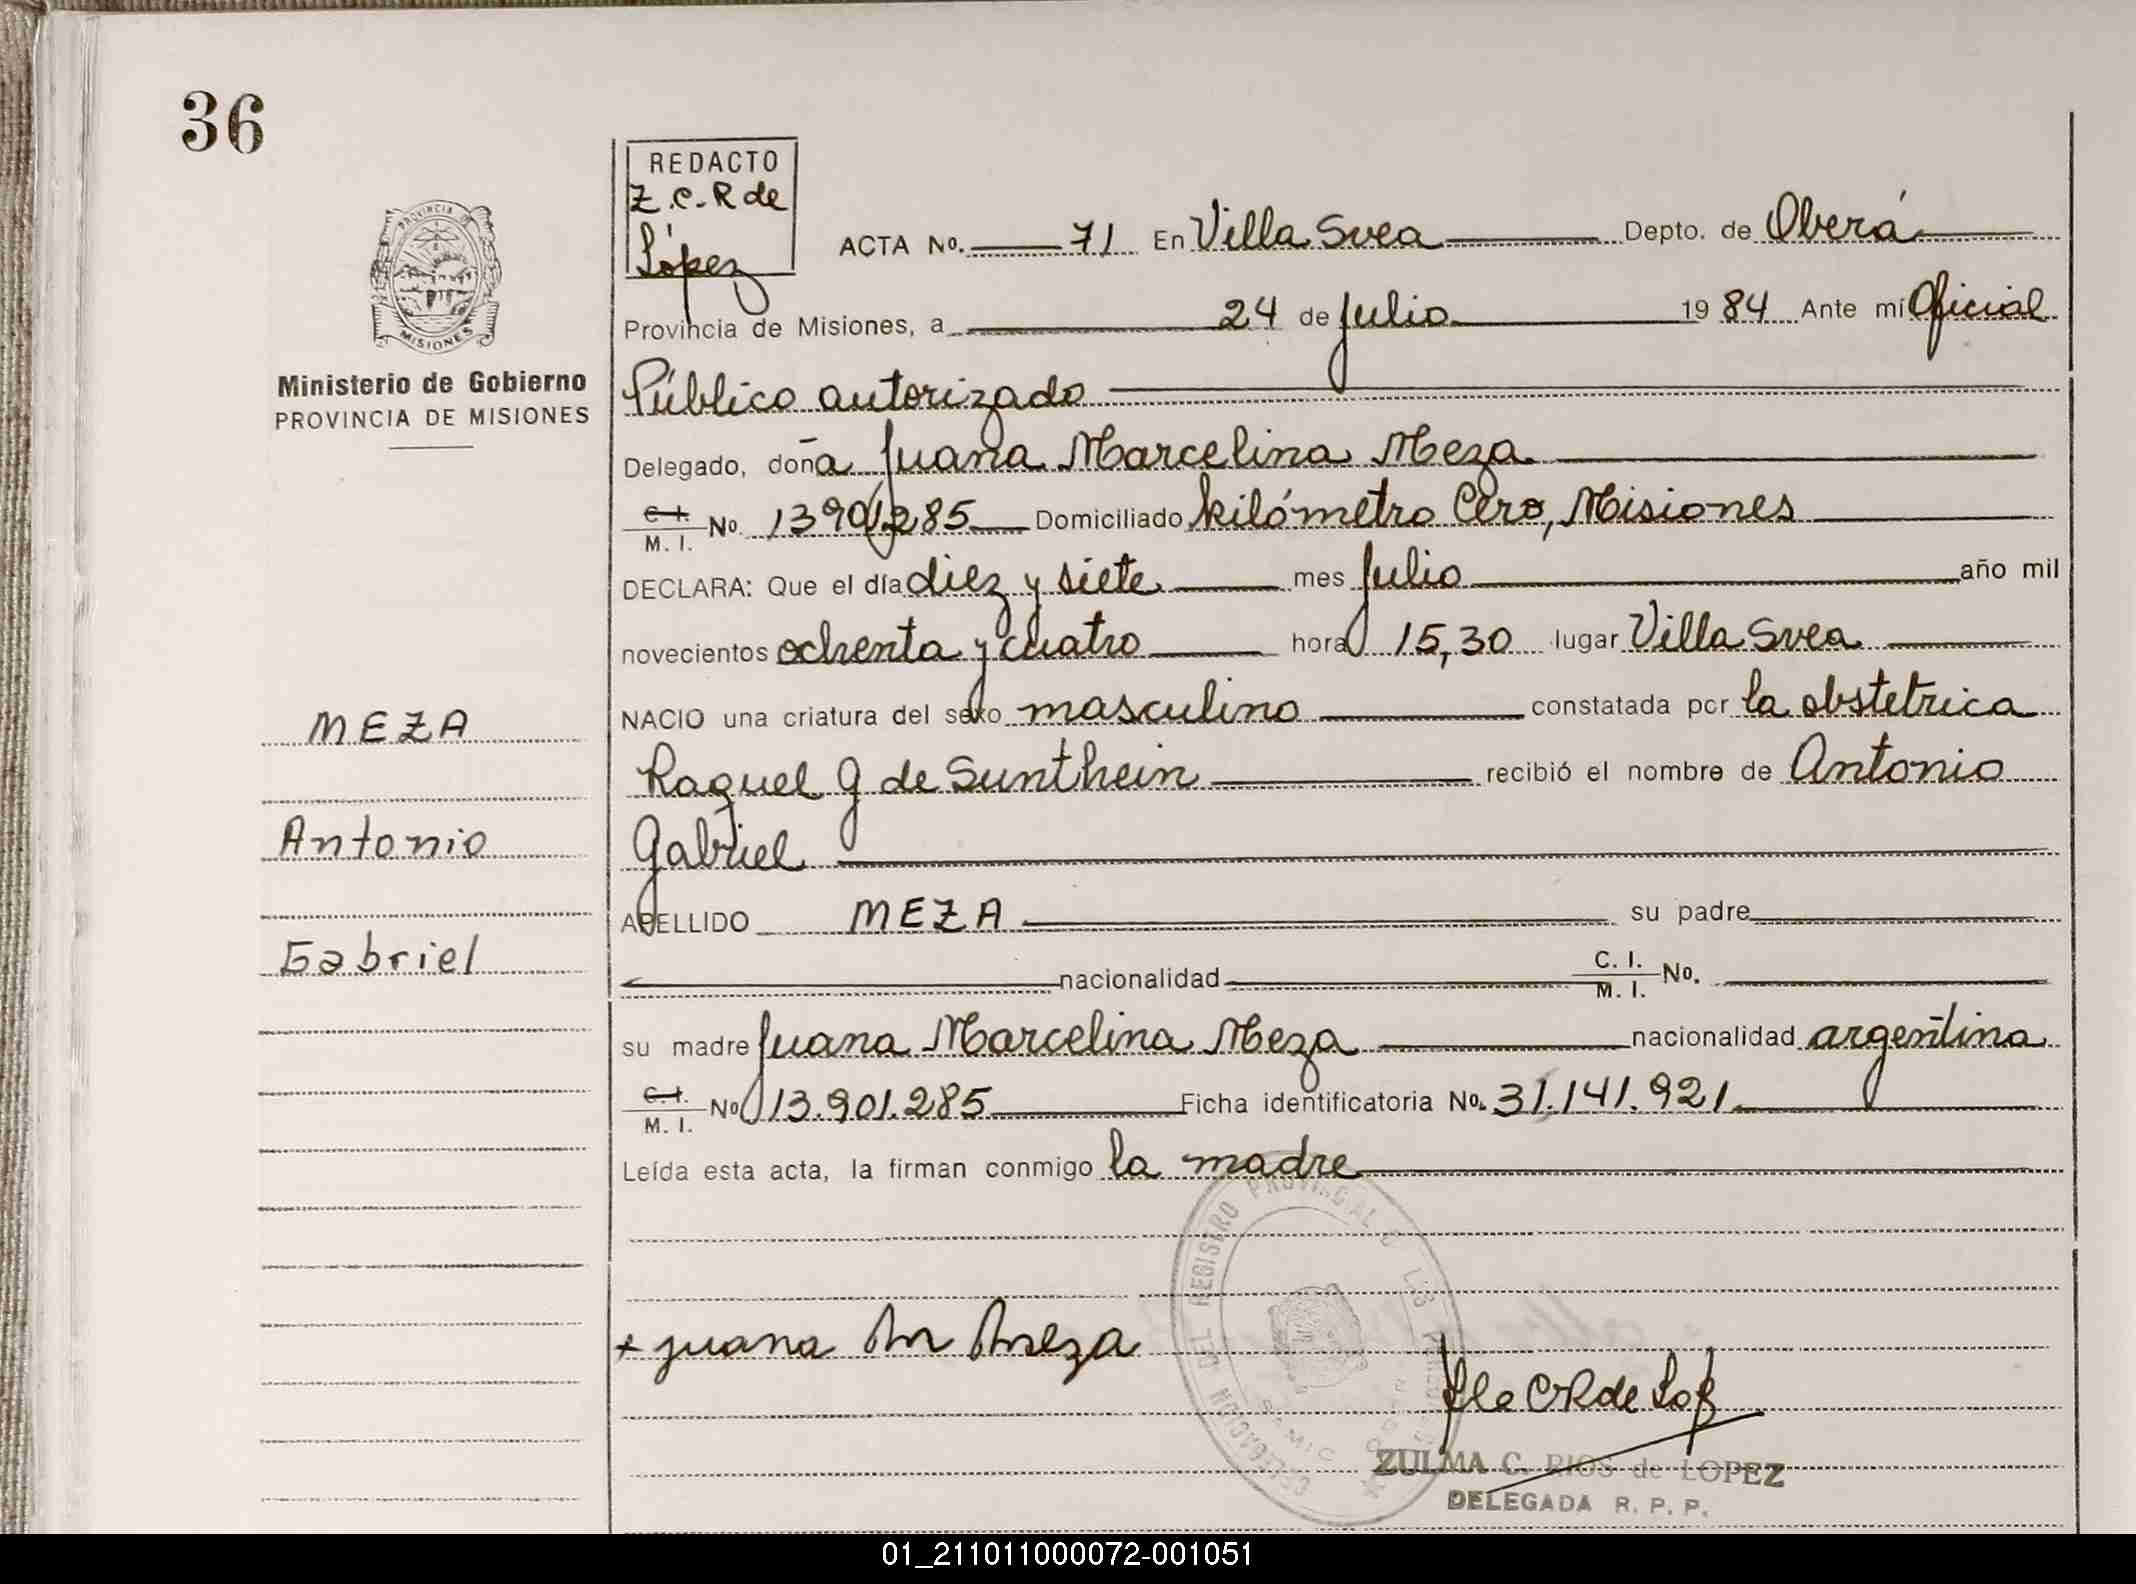 36
REDACTO
Z.C.R de
López
PROVINCIA DE
MISIONES
Ministerio de Gobierno
PROVINCIA DE MISIONES
ACTA No. 71 En Villa Svea Depto. de Oberá
Provincia de Misiones, a 24 de julio 1984 Ante mí Oficial
Público autorizado
Delegado, doña Juana Marcelina Meza
C. I. / M. I. No. 13901285 Domiciliado kilómetro Cero, Misiones
DECLARA: Que el día diez y siete mes julio año mil
novecientos ochenta y cuatro hora 15,30 lugar Villa Svea
NACIO una criatura del sexo masculino constatada por la obstetrica
Raquel G de Sunthein recibió el nombre de Antonio
Gabriel
APELLIDO MEZA su padre
nacionalidad C. I. / M. I. No.
su madre Juana Marcelina Meza nacionalidad argentina
C. I. / M. I. No 13.901.285 Ficha identificatoria No. 31.141.921
Leída esta acta, la firman conmigo la madre
MEZA
Antonio
Gabriel
+ Juana M Meza
DELEGACION DEL REGISTRO PROVINCIAL DE LAS
ZULMA C. RIOS de LOPEZ
DELEGADA R. P. P.
01_211011000072-001051